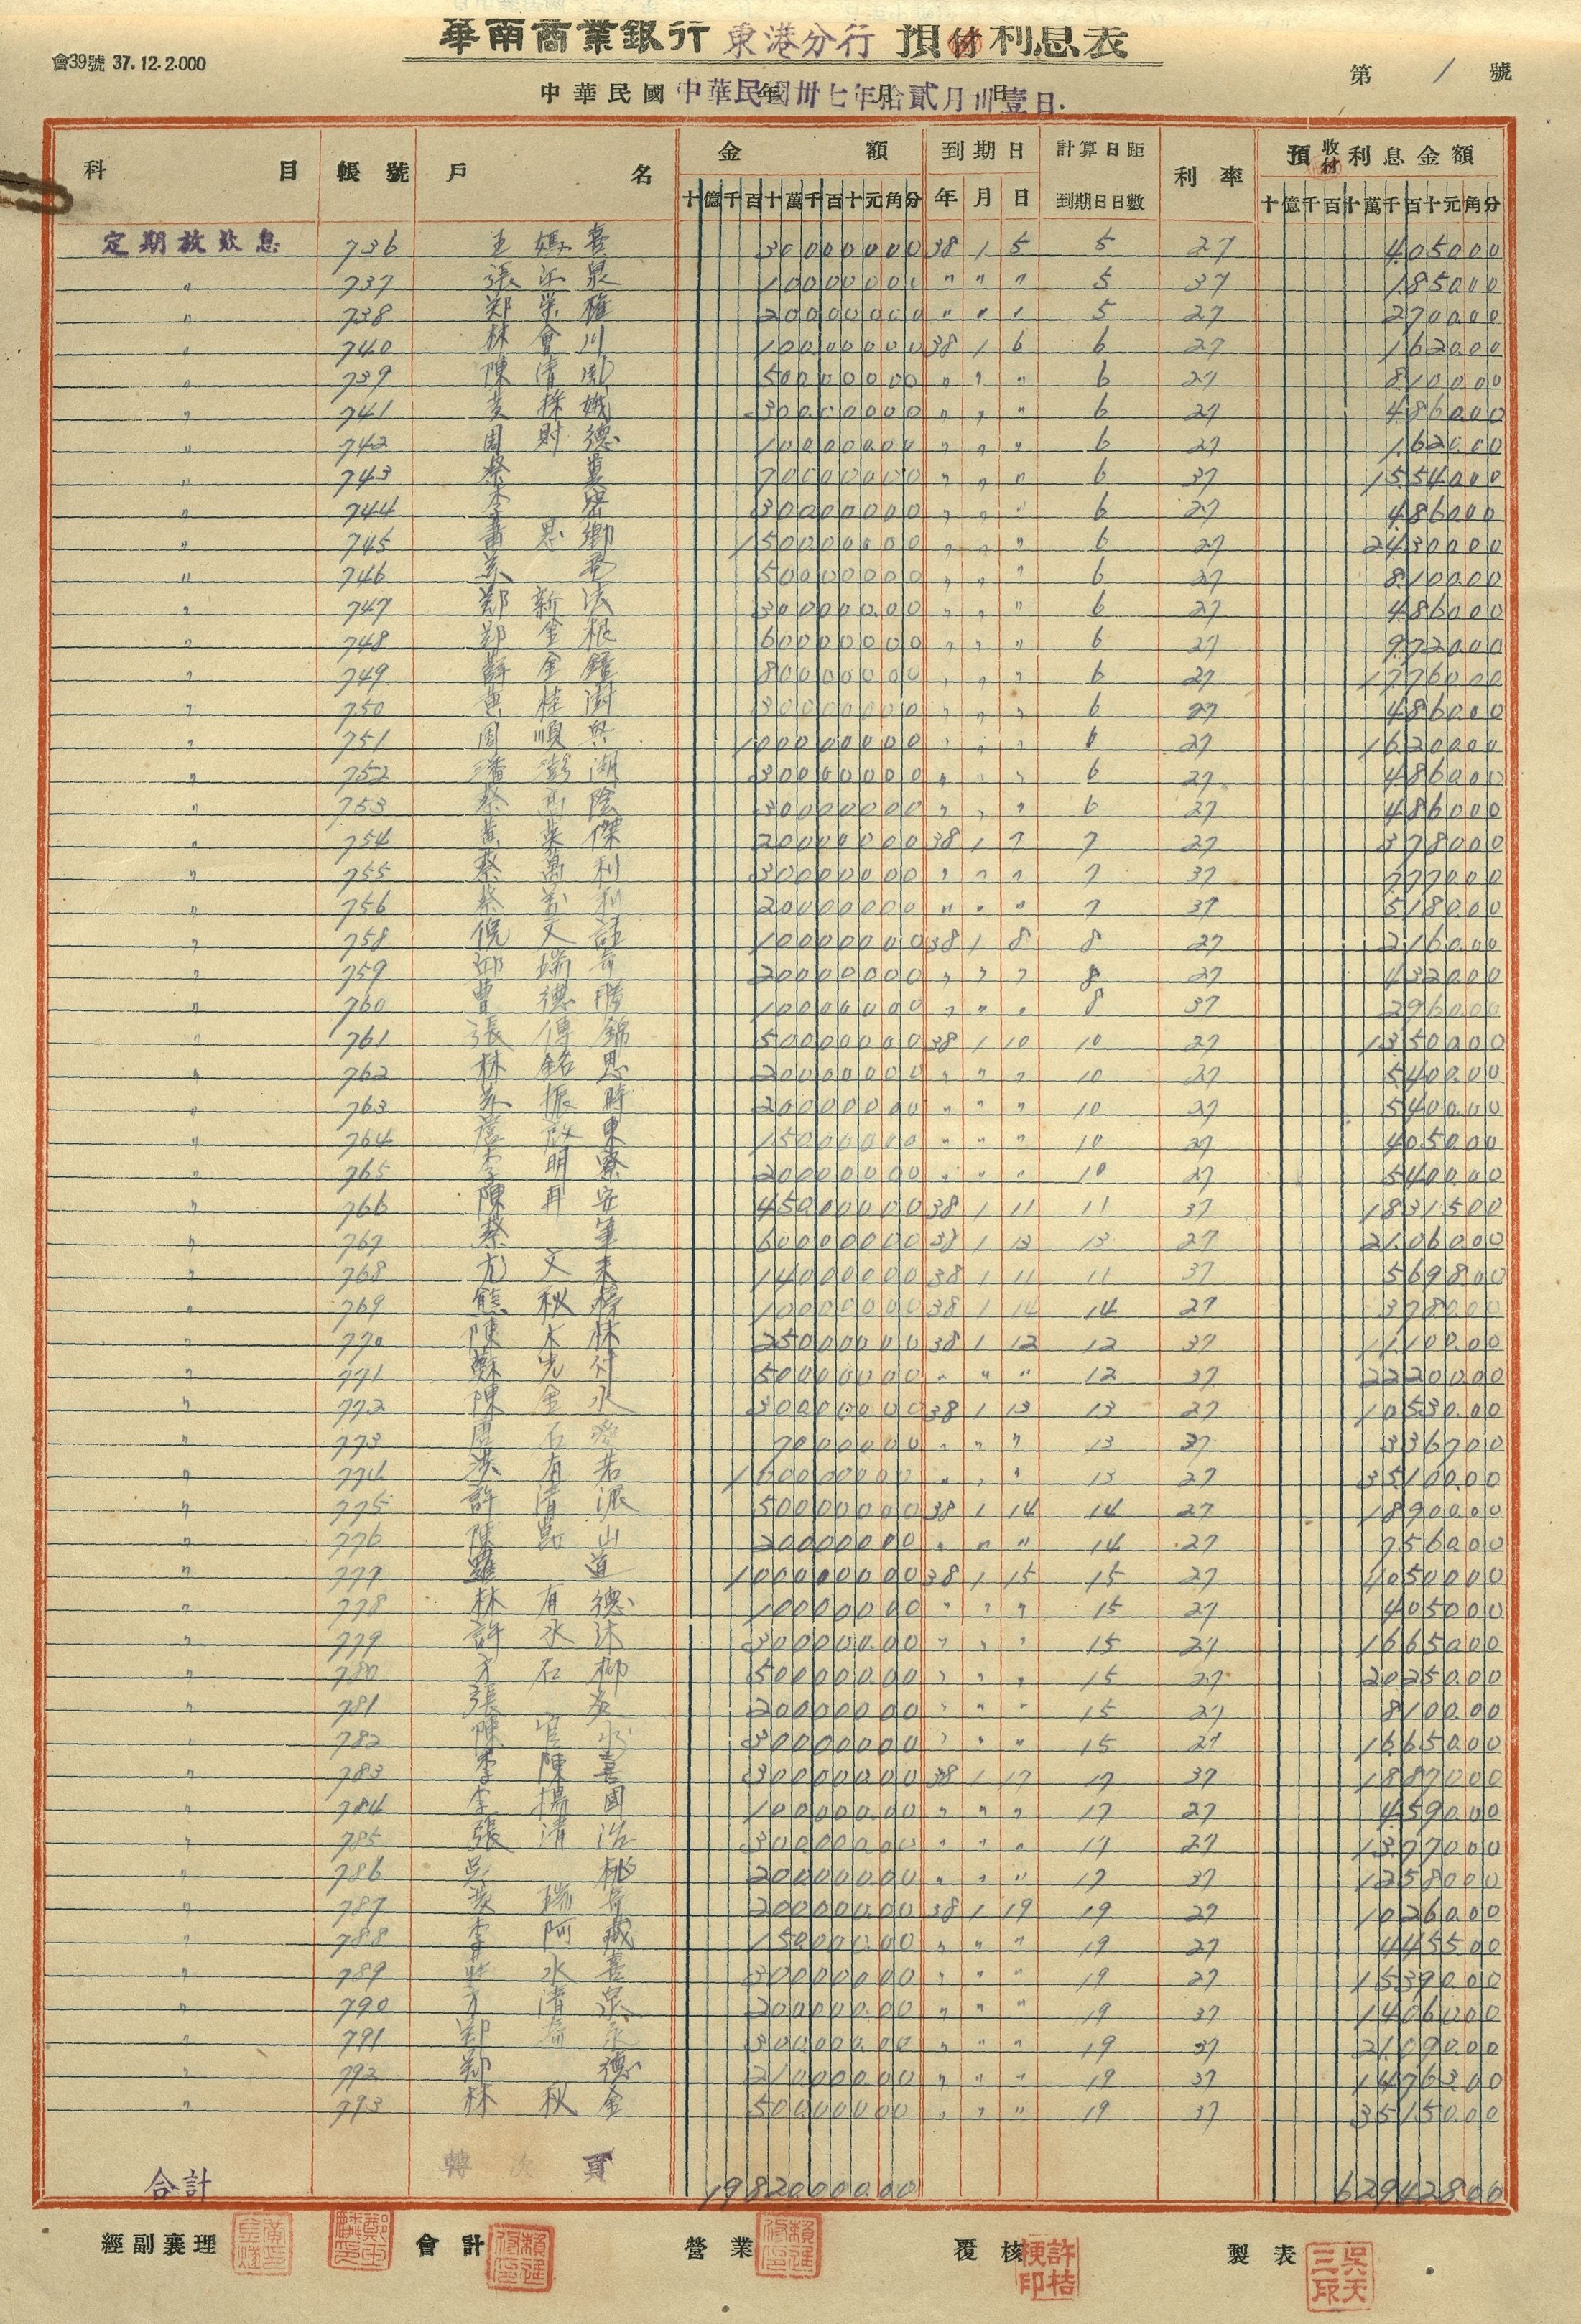 華南商業銀行 東港分行 預付利息表
會39號 37.12.2.000
第 1 號
中華民國 年 月 日
中華民國卅七年拾貳月卅壹日.
科目 帳號 戶名 金額 到期日 計算日距到期日日數 利率 預收付利息金額
十億千百十萬千百十元角分 年 月 日 十億千百十萬千百十元角分
定期放款息 736 王媽喜 300000000 38 1 5 5 27 405000
〃 737 張 泉 100000000 〃 〃 〃 5 37 185000
〃 738 鄭榮 200000000 〃 〃 〃 5 27 270000
〃 740 林會川 100000000 38 1 6 6 27 162000
〃 739 陳清 500000000 〃 〃 〃 6 27 810000
〃 741 黃 娥 300000000 〃 〃 〃 6 27 486000
〃 742 周財德 100000000 〃 〃 〃 6 27 162000
〃 743 蔡 700000000 〃 〃 〃 6 37 1554000
〃 744 李 300000000 〃 〃 〃 6 27 486000
〃 745 思鄉 1500000000 〃 〃 〃 6 27 2430000
〃 746 500000000 〃 〃 〃 6 27 810000
〃 747 鄭新法 300000000 〃 〃 〃 6 27 486000
〃 748 鄭金根 600000000 〃 〃 〃 6 27 972000
〃 749 金鐘 800000000 〃 〃 〃 6 27 1776000
〃 750 黃桂樹 300000000 〃 〃 〃 6 27 486000
〃 751 周順興 1000000000 〃 〃 〃 6 27 1620000
〃 752 潘澎湖 300000000 〃 〃 〃 6 27 486000
〃 753 蔡 陰 300000000 〃 〃 〃 6 27 486000
〃 754 黃榮傑 200000000 38 1 7 7 27 378000
〃 755 蔡萬利 300000000 〃 〃 〃 7 37 777000
〃 756 蔡萬利 200000000 〃 〃 〃 7 37 518000
〃 758 倪文 100000000 38 1 8 8 27 216000
〃 759 邱瑞奇 200000000 〃 〃 〃 8 27 432000
〃 760 曹德勝 100000000 〃 〃 〃 8 37 296000
〃 761 張傳錦 500000000 38 1 10 10 27 1350000
〃 762 林銘恩 200000000 〃 〃 〃 10 27 540000
〃 763 振時 200000000 〃 〃 〃 10 27 540000
〃 764 啟東 150000000 〃 〃 〃 10 27 405000
〃 765 李明寮 200000000 〃 〃 〃 10 27 540000
〃 766 陳再安 450000000 38 1 11 11 37 1831500
〃 767 蔡 600000000 38 1 13 13 27 2106000
〃 768 尤文來 140000000 38 1 11 11 37 569800
〃 769 熊秋 100000000 38 1 14 14 27 378000
〃 770 陳木林 250000000 38 1 12 12 37 1110000
〃 771 蘇先 500000000 〃 〃 〃 12 37 2220000
〃 772 陳金水 300000000 38 1 13 13 27 1053000
〃 773 石 70000000 〃 〃 〃 13 37 336700
〃 774 洪有若 1000000000 〃 〃 〃 13 27 3510000
〃 775 許清派 500000000 38 1 14 14 27 1890000
〃 776 陳崑山 200000000 〃 〃 〃 14 27 756000
〃 777 羅道 1000000000 38 1 15 15 27 4050000
〃 778 林有德 100000000 〃 〃 〃 15 27 405000
〃 779 許水沐 300000000 〃 〃 〃 15 27 1665000
〃 780 方石柳 500000000 〃 〃 〃 15 27 2025000
〃 781 張 200000000 〃 〃 〃 15 27 810000
〃 782 陳 水 300000000 〃 〃 〃 15 27 1665000
〃 783 李陳喜 300000000 38 1 17 17 37 1887000
〃 784 李揚國 100000000 〃 〃 〃 17 27 459000
〃 785 張清 300000000 〃 〃 〃 17 27 1377000
〃 786 吳桃 200000000 〃 〃 〃 17 37 1258000
〃 787 瑞奇 200000000 38 1 19 19 27 1026000
〃 788 李阿 150000000 〃 〃 〃 19 27 445500
〃 789 水喜 300000000 〃 〃 〃 19 27 1539000
〃 790 方清泉 200000000 〃 〃 〃 19 37 1406000
〃 791 鄭 永 300000000 〃 〃 〃 19 37 2109000
〃 792 鄭德 210000000 〃 〃 〃 19 37 1476300
〃 793 林秋金 500000000 〃 〃 〃 19 37 3515000
轉次頁
合計 19820000000 62942800
經副襄理 會計 營業 覆核 製表
許桔梗印
吳天三印